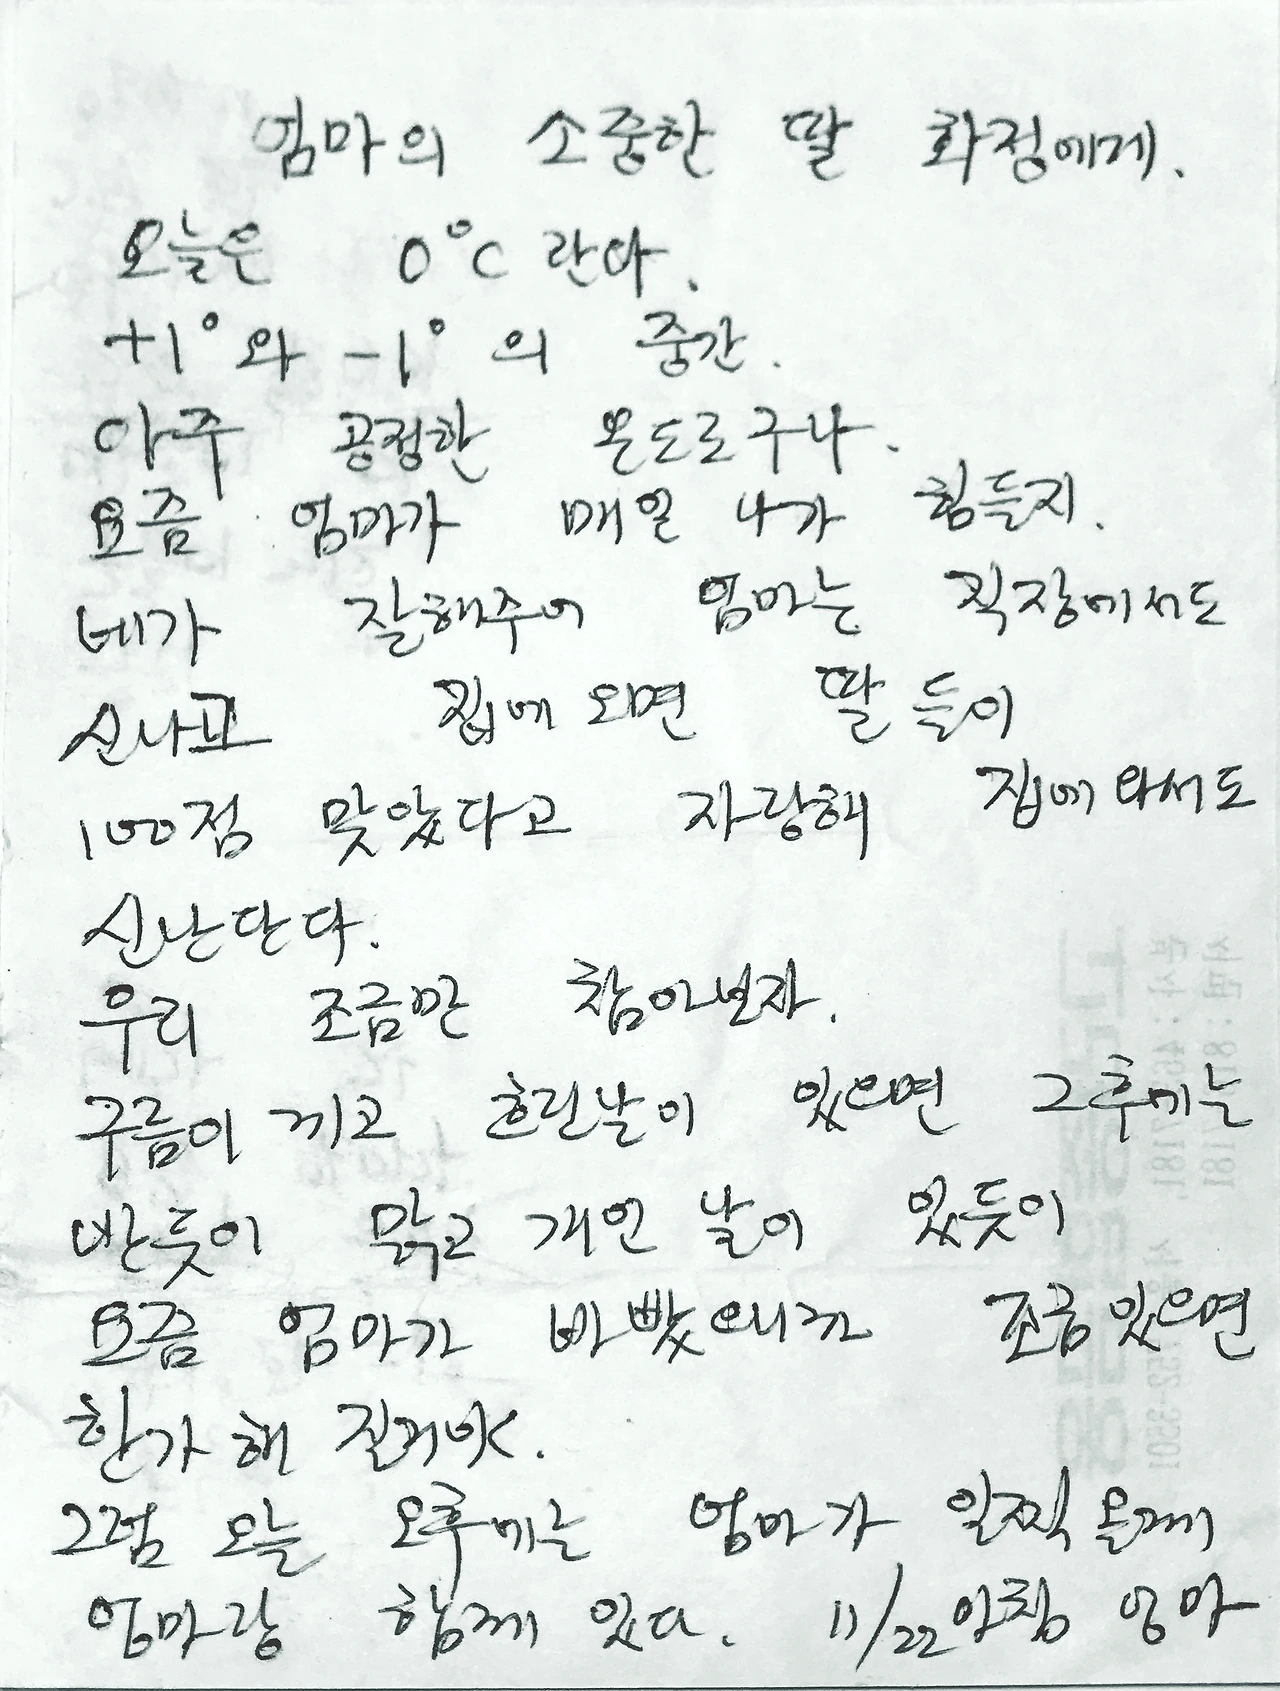 엄마의 소중한 딸 화정에게.
오늘은 0°C 란다.
+1°와 -1°의 중간.
아주 공정한 온도로구나.
요즘 엄마가 매일 나가 힘들지.
네가 잘해주어 엄마는 직장에서도
신나고 집에 오면 딸들이
100점 맞았다고 자랑해 집에 와서도
신난단다.
우리 조금만 참아보자.
구름이 끼고 흐린날이 있으면 그후에는
반듯이 맑고 개인 날이 있듯이
요즘 엄마가 바빴으니까 조금있으면
한가해 질거야.
그럼 오늘 오후에는 엄마가 일찍 올께
엄마랑 함께 있자. 11/22 아침 엄마